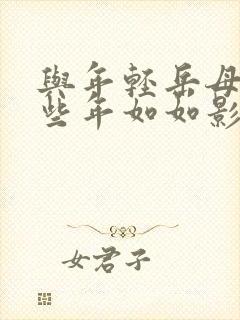 與年輕岳母
些年如如影
女君子